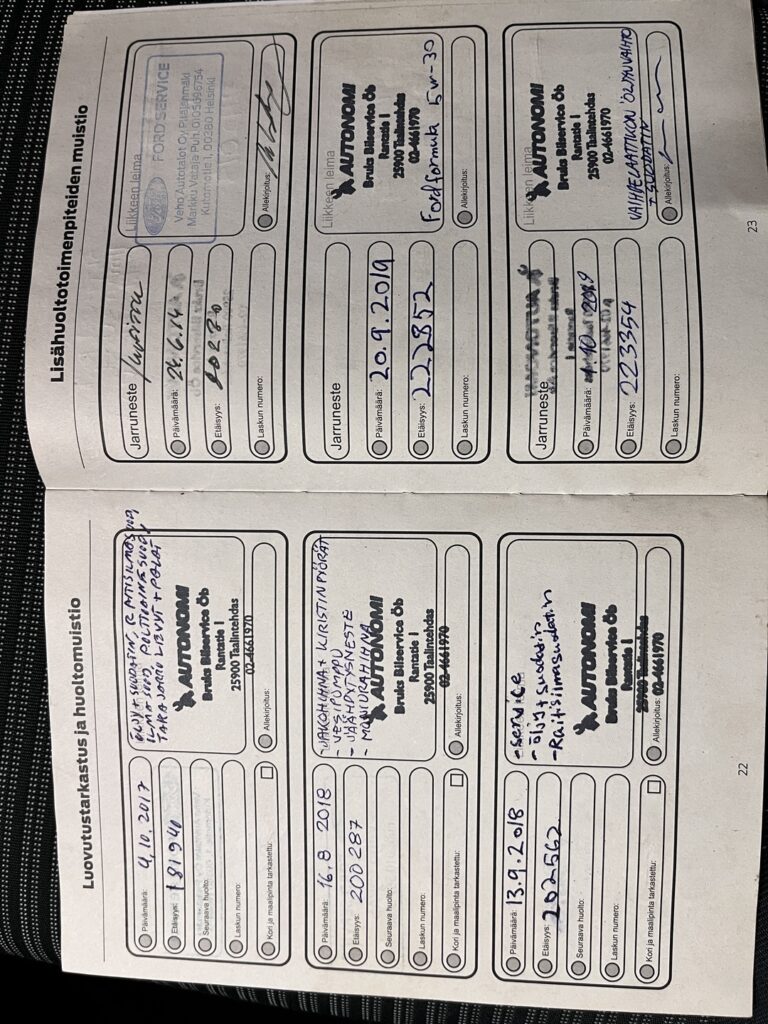 Luovutustarkastus ja huoltomuistio
Päivämäärä: 4.10.2017
Etäisyys: 181940
Seuraava huolto:
Laskun numero:
Kori ja maalipinta tarkastettu:
ÖLJY + SUODATIN, RAITISILMASUOD,
ILMASUOD, POLTTOAINESUOD,
TAKAJARRU LEVYT + PALAT
AUTONOMI
Bruks Bilservice Öb
Rantatie 1
25900 Taalintehdas
02-4661970
Allekirjoitus:
Päivämäärä: 16.8 2018
Etäisyys: 200287
Seuraava huolto:
Laskun numero:
Kori ja maalipinta tarkastettu:
- JAKOHIHNA + KIRISTINPYÖRÄT
- VESIPUMPPU
- JÄÄHDYTYSNESTE
- MONIURAHIHNA
AUTONOMI
Bruks Bilservice Öb
Rantatie 1
25900 Taalintehdas
02-4661970
Allekirjoitus:
Päivämäärä: 13.9.2018
Etäisyys: 202562
Seuraava huolto:
Laskun numero:
Kori ja maalipinta tarkastettu:
- service
- öljy + suodatin
- Raitisilmasuodatin
AUTONOMI
Bruks Bilservice Öb
Rantatie 1
25900 Taalintehdas
02-4661970
Allekirjoitus:
22
Lisähuoltotoimenpiteiden muistio
Jarruneste
Päivämäärä: 26.6.14
Etäisyys:
Laskun numero:
Liikkeen leima
FORD SERVICE
Veho Autotalot Oy, Pitäjänmäki
Markku Vataja Puh. 0105696754
Kutomotie 1, 00380 Helsinki
Allekirjoitus:
Jarruneste
Päivämäärä: 20.9.2019
Etäisyys: 222852
Laskun numero:
Liikkeen leima
AUTONOMI
Bruks Bilservice Öb
Rantatie 1
25900 Taalintehdas
02-4661970
Ford formula 5w-30
Allekirjoitus:
Jarruneste
Päivämäärä:
Etäisyys: 223354
Laskun numero:
Liikkeen leima
AUTONOMI
Bruks Bilservice Öb
Rantatie 1
25900 Taalintehdas
02-4661970
VAIHDELAATIKON ÖLJYNVAIHTO
+ SUODATIN
Allekirjoitus:
23